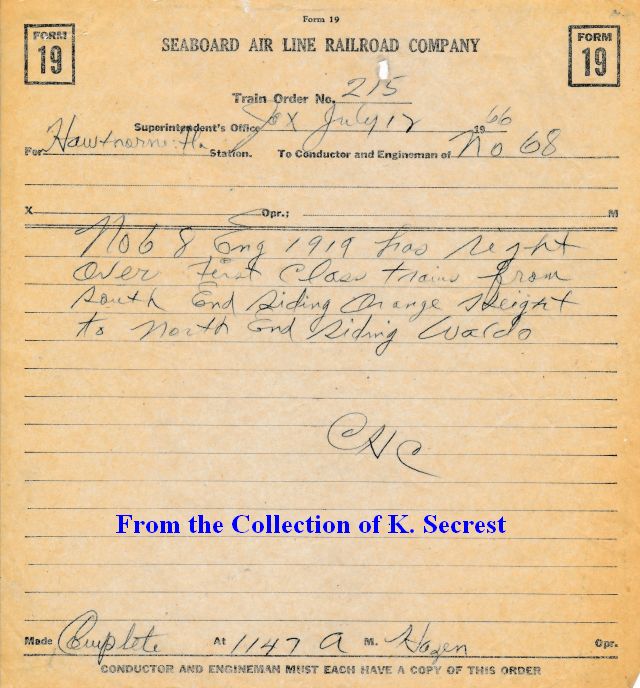 Form 19
FORM
19
SEABOARD AIR LINE RAILROAD COMPANY
FORM
19
Train Order No. 215
Superintendent's Office Jax July 12 1966
For Hawthorne Fla. Station. To Conductor and Engineman of No 68
X Opr.; M
No 68 Eng 1919 has right
over First Class trains from
South End Siding Orange Height
to North End Siding Waldo
CHC
From the Collection of K. Secrest
Made Complete At 1147 A M. Hazen Opr.
CONDUCTOR AND ENGINEMAN MUST EACH HAVE A COPY OF THIS ORDER